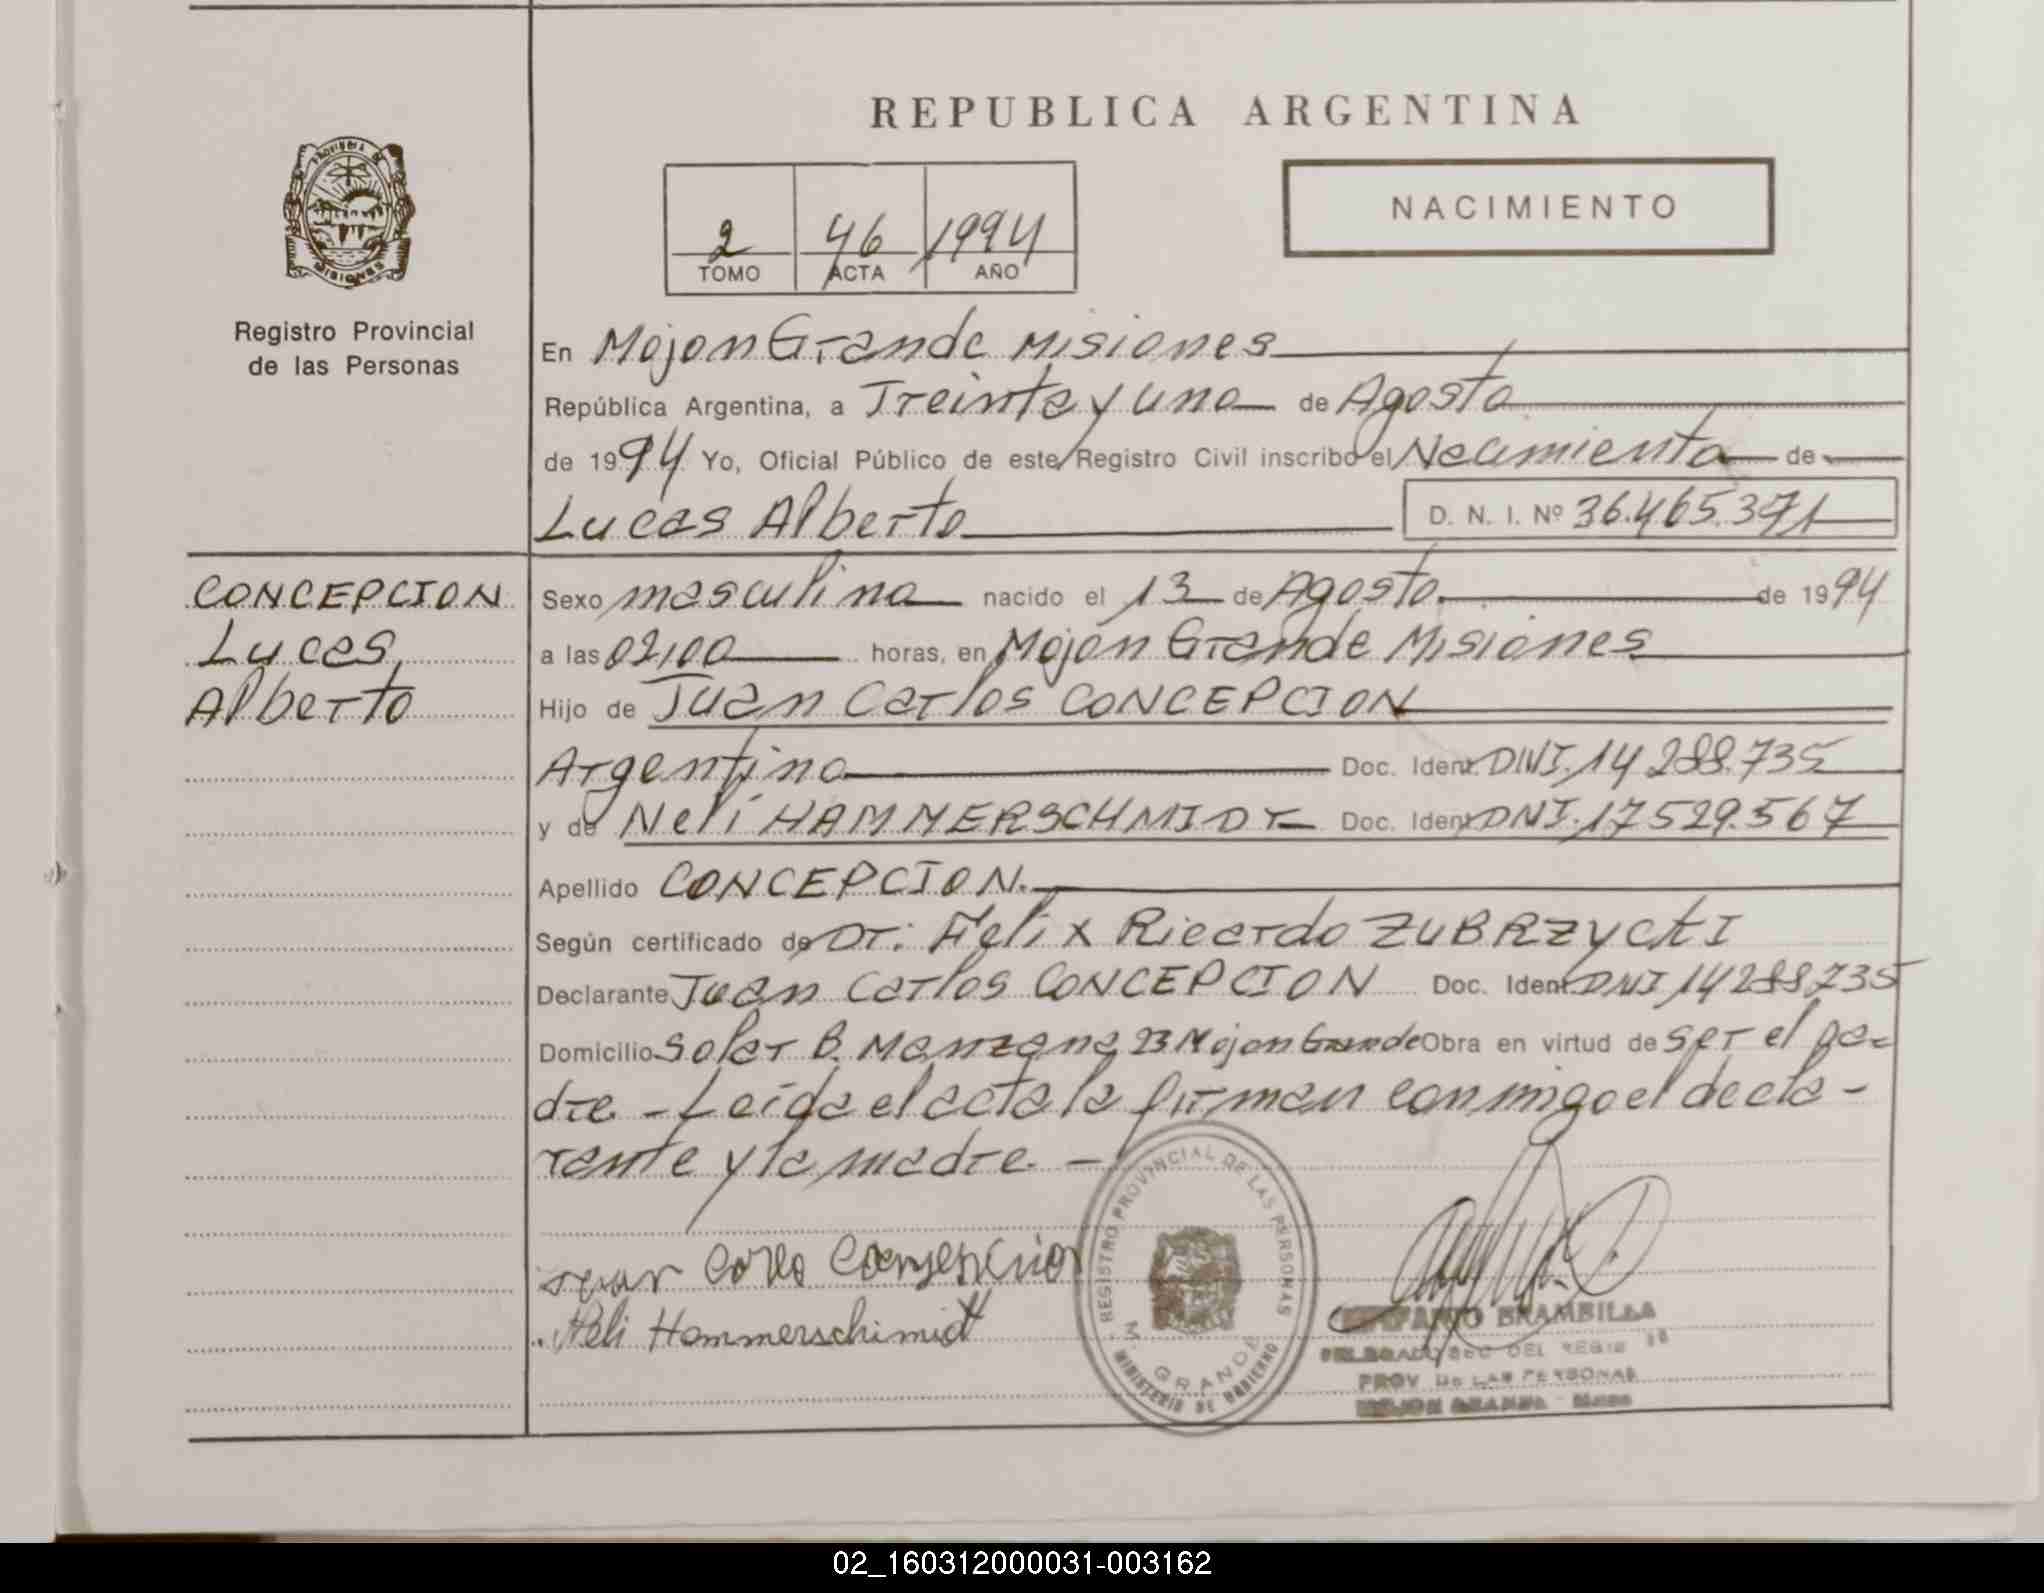 REPUBLICA ARGENTINA
PROVINCIA DE
MISIONES
Registro Provincial
de las Personas
2 46 1994
TOMO ACTA AÑO
NACIMIENTO
En Mojon Grande Misiones
República Argentina, a Treinta y uno de Agosto
de 1994 Yo, Oficial Público de este Registro Civil inscribo el Nacimiento de
Lucas Alberto D. N. I. Nº 36.465.371
CONCEPCION
Lucas,
Alberto
Sexo masculino nacido el 13 de Agosto. de 1994
a las 02,00 horas, en Mojón Grande Misiones
Hijo de Juan Carlos CONCEPCION
Argentino Doc. Ident. DNI. 14 288.735
y de Neli HAMMERSCHMIDT Doc. Ident DNI. 17529.567
Apellido CONCEPCION.
Según certificado de Dr. Felix Ricardo ZUBRZYCKI
Declarante Juan Carlos CONCEPCION Doc. Ident DNI 14288735
Domicilio Solar B. Manzana 23 Mojon Grande Obra en virtud de ser el pa-
dre - Leída el acta la firman conmigo el decla-
rante y la madre. -
REGISTRO PROVINCIAL DE LAS PERSONAS
M. GRANDE
MINISTERIO DE GOBIERNO
Neli Hammerschimidt
BRAMBILLA
DEL REGIS
PROV DE LAS PERSONAS
MOJON GRANDE - Mnes
02_160312000031-003162